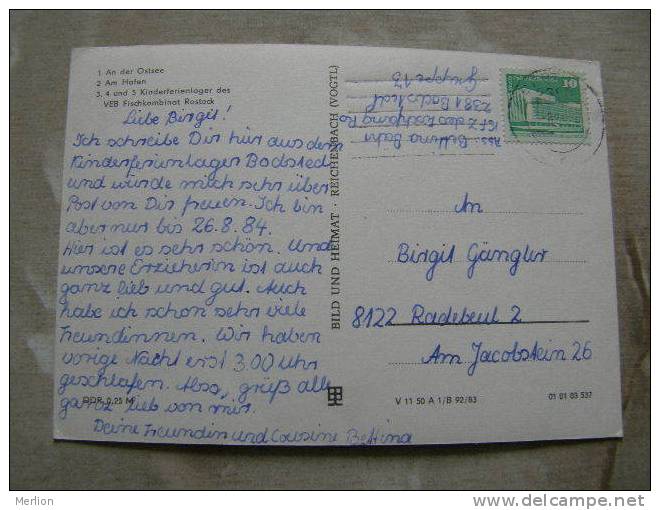 1 An der Ostsee
2 Am Hafen
3, 4 und 5 Kinderferienlager des
VEB Fischkombinat Rostock
Liebe Birgit!
Ich schreibe Dir hier aus dem
Kinderferienlager Bodsted
und würde mich sehr über
Post von Dir freuen. Ich bin
aber nur bis 26.8.84.
Hier ist es sehr schön. Und
unsere Erzieherin ist auch
ganz lieb und gut. Auch
habe ich schon sehr viele
Freundinnen. Wir haben
vorige Nacht erst 3.00 Uhr
geschlafen. Also, grüß alle
ganz lieb von mir.
Deine Freundin und Cousine Bettina
DDR 0,25 M
BILD UND HEIMAT · REICHENBACH (VOGTL)
Abs.: Bettina
2381 Bodstedt
Gruppe 13
10
An
Birgit Gängler
8122 Radebeul 2
Am Jacobstein 26
V 11 50 A 1/B 92/83
01 01 03 537
Merlion
www.delcampe.net